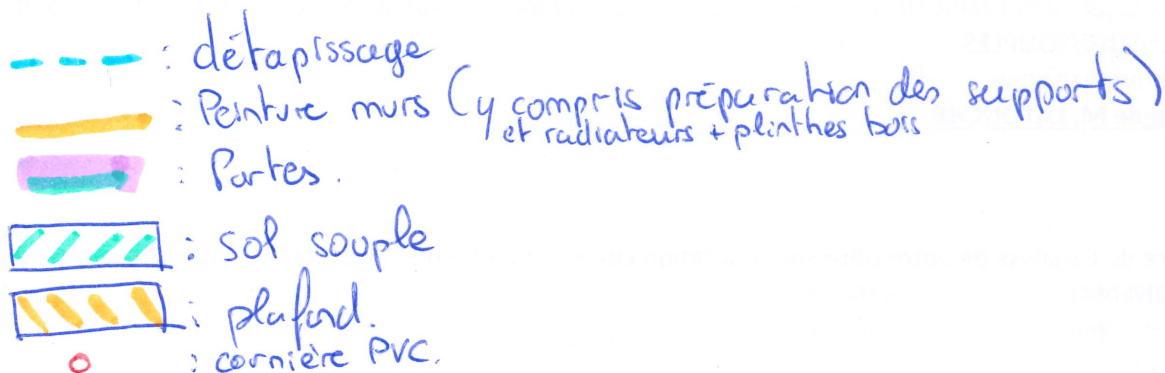 : détapissage
: Peinture murs (y compris préparation des supports)
et radiateurs + plinthes bois
: Portes.
: sol souple
: plafond.
: cornière PVC.